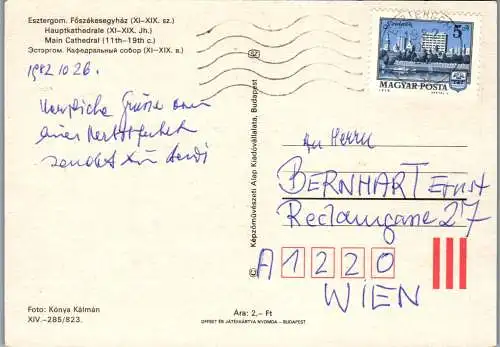 Esztergom. Főszékesegyház (XI–XIX. sz.)
Hauptkathedrale (XI–XIX. Jh.)
Main Cathedral (11th–19th c.)
Эстергом. Кафедральный собор (XI–XIX. в.)
1982 10 26.
Herzliche Grüsse von
einer Herbst
sendet
Foto: Kónya Kálmán
XIV.–285/823.
Ára: 2,– Ft
OFFSET ÉS JÁTÉKKÁRTYA NYOMDA – BUDAPEST
© Képzőművészeti Alap Kiadóvállalata, Budapest
5 Ft
MAGYAR POSTA
An Herrn
BERNHART Ernst
27
A 1220
WIEN